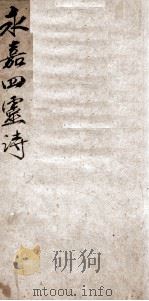 永嘉四靈詩
研狗
mtoou.info